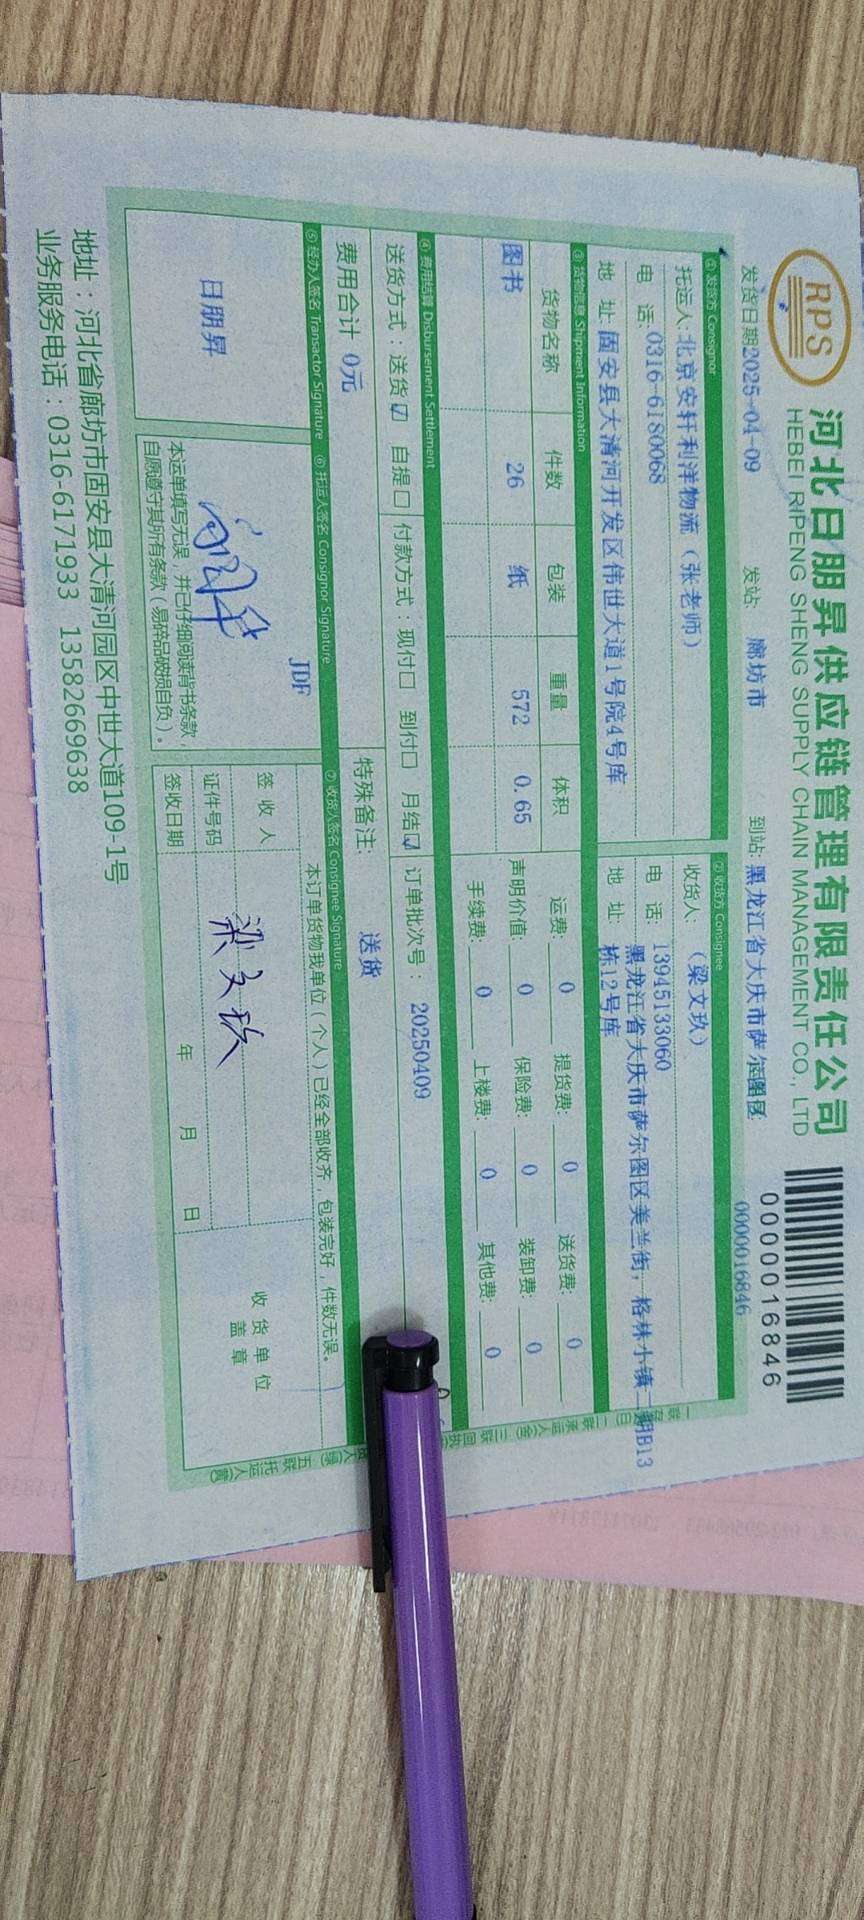 RPS
河北日朋昇供应链管理有限责任公司
HEBEI RIPENG SHENG SUPPLY CHAIN MANAGEMENT CO., LTD
0000016846
0000016846
发货日期2025-04-09 发站: 廊坊市 到站: 黑龙江省大庆市萨尔图区
① 发货方 Consignor
托运人:北京安轩利洋物流（张老师）
电 话:0316-6180068
地 址 固安县大清河开发区伟世大道1号院4号库
② 收货方 Consignee
收货人:（梁文玖）
电 话:13945133060
地 址 黑龙江省大庆市萨尔图区美兰街，格林小镇二期B13
栋12号库
③ 货物信息 Shipment Information
货物名称 件数 包装 重量 体积
图书 26 纸 572 0.65
运费: 0 提货费: 0 送货费: 0
声明价值: 0 保险费: 0 装卸费: 0
手续费: 0 上楼费: 0 其他费: 0
④ 费用结算 Disbursement Settlement
送货方式：送货☑ 自提☐ 付款方式：现付☐ 到付☐ 月结☑ 订单批次号： 20250409
费用合计 0元 特殊备注: 送货
⑤ 经办人签名 Transactor Signature
日朋昇
⑥ 托运人签名 Consignor Signature
JDF
本运单填写无误，并已仔细阅读背书条款，
自愿遵守其所有条款（易碎品破损自负）。
⑦ 收货人签名 Consignee Signature
本订单货物我单位（个人）已经全部收齐，包装完好，件数无误。
签 收 人 梁文玖
证件号码
签收日期 年 月 日
收 货 单 位
盖 章
地址：河北省廊坊市固安县大清河园区中世大道109-1号
业务服务电话：0316-6171933 13582669638